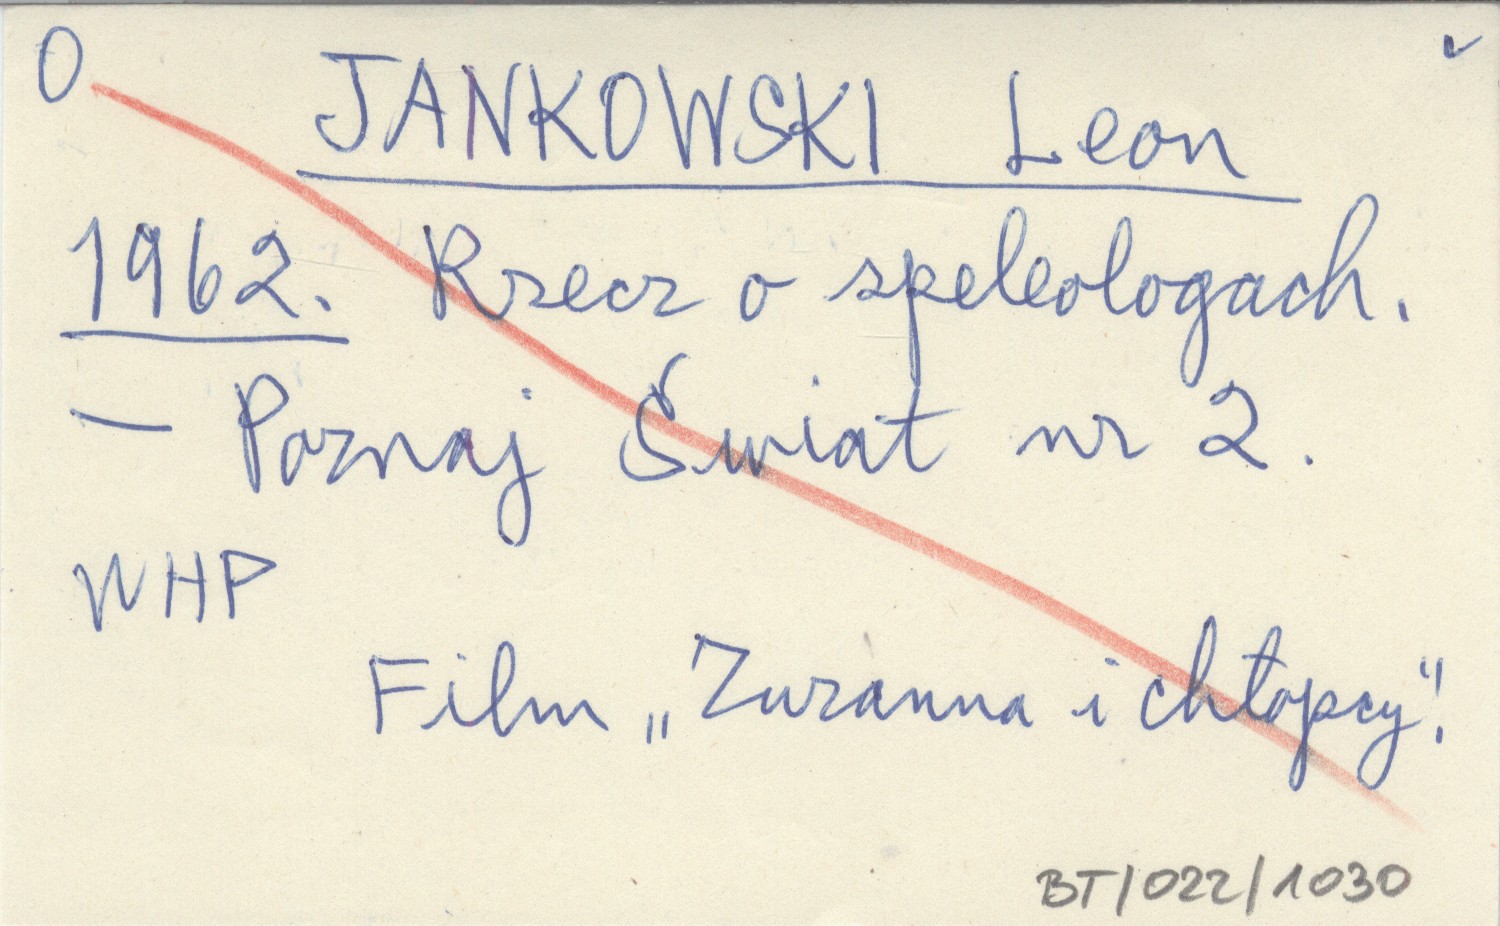 O
JANKOWSKI Leon
1962. Rzecz o speleologach.
– Poznaj Świat nr 2.
WHP
Film „Zuzanna i chłopcy".
BT/022/1030